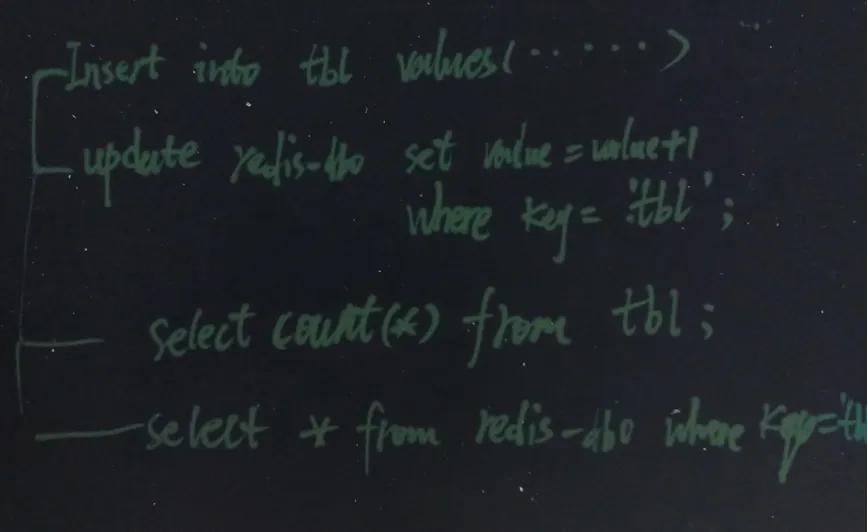 Insert into tbl values(······)
update redis-db0 set value=value+1
where key= 'tbl';
select count(*) from tbl;
select * from redis-db0 where key='tb